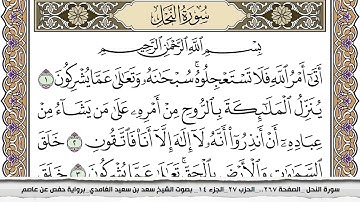 سُورَةُ النَّحْلِ
بِسْمِ اللَّهِ الرَّحْمَٰنِ الرَّحِيمِ
أَتَىٰ أَمْرُ اللَّهِ فَلَا تَسْتَعْجِلُوهُ ۚ سُبْحَانَهُ وَتَعَالَىٰ عَمَّا يُشْرِكُونَ ١
يُنَزِّلُ الْمَلَائِكَةَ بِالرُّوحِ مِنْ أَمْرِهِ عَلَىٰ مَن يَشَاءُ مِنْ
عِبَادِهِ أَنْ أَنذِرُوا أَنَّهُ لَا إِلَٰهَ إِلَّا أَنَا فَاتَّقُونِ ٢ خَلَقَ
السَّمَاوَاتِ وَالْأَرْضَ بِالْحَقِّ ۚ تَعَالَىٰ عَمَّا يُشْرِكُونَ ٣ خَلَقَ
سورة النحل _ الصفحة ٢٦٧ _ الحزب ٢٧ _ الجزء ١٤ _ بصوت الشيخ سعد بن سعيد الغامدي _ برواية حفص عن عاصم